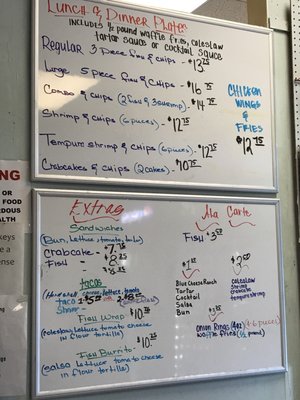 Lunch & Dinner Plates
includes ½ pound waffle fries, coleslaw
tartar sauce or cocktail sauce
Regular 3 piece fish & chips - $13.25
Large 5 piece fish & Chips - $16.
Combo & chips (2 fish/3 shrimp) - $14.75
Shrimp & chips (6 pieces) - $12.75
Tempura shrimp & chips (6 pieces) - $12.75
Crabcakes & chips (2 cakes) - $10.75
Chicken
Wings
&
Fries
$12.75
Extras
Sandwiches
(Bun, lettuce, tomato,
Crabcake - $7.
Fish - $8.25
$8.25
tacos
cheese, lettuce, tomato
taco
Fish Wrap $10.
(coleslaw, lettuce tomato cheese
in flour tortilla)
$10.25
Fish Burrito
lettuce tomato cheese
in flour tortilla)
Ala Carte
Fish - $3.50
Blue Cheese/Ranch
Tartar
Cocktail
Salsa
Bun
coleslaw
shrimp
crabcake
tempura shrimp
Onion Rings
waffle fries (½ pound)
OR
DOUS
HEALTH
keys
are a
nse